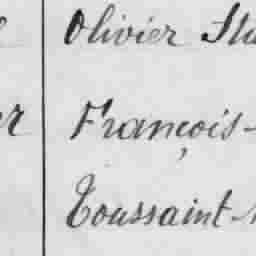 Olivier
François-
Toussaint-